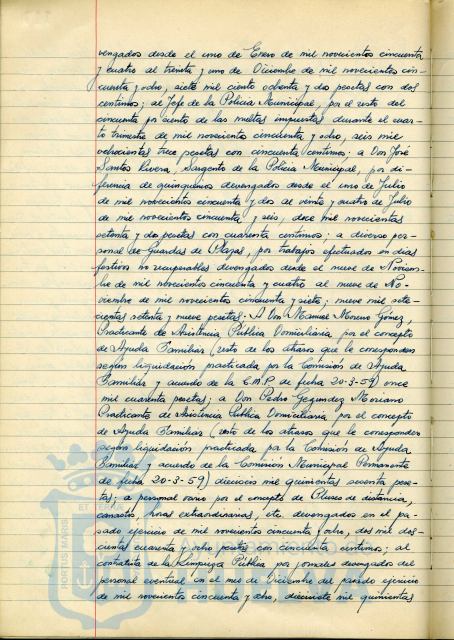 vengados desde el uno de Enero de mil novecientos cincuenta
y cuatro al treinta y uno de Diciembre de mil novecientos cin-
cuenta y ocho, siete mil ciento ochenta y dos pesetas con dos
centimos; al Jefe de la Policia Municipal, por el resto del
cincuenta por ciento de las multas impuestas durante el cuar-
to trimestre de mil novecientos cincuenta y ocho, seis mil
ochocientas trece pesetas con cincuenta centimos; a Don José
Santos Rivera, Sargento de la Policia Municipal, por di-
ferencia de quinquenios devengados desde el uno de Julio
de mil novecientos cincuenta y dos al veinte y cuatro de Julio
de mil novecientos cincuenta y seis, doce mil novecientas
setenta y dos pesetas con cuarenta centimos; a diverso per-
sonal de Guardas de Plazas, por trabajos efectuados en dias
festivos no recuperables devengados desde el nueve de Noviem-
bre de mil novecientos cincuenta y cuatro al nueve de No-
viembre de mil novecientos cincuenta y siete; nueve mil sete-
cientas setenta y nueve pesetas; A Don Manuel Moreno Gómez,
Practicante de Asistencia Pública Domiciliaria por el concepto
de Ayuda Familiar (resto de los atrasos que le corresponden
según liquidación practicada por la Comisión de Ayuda
Familiar y acuerdo de la C.M.P. de fecha 20-3-59) once
mil cuarenta pesetas; a Don Pedro Gegundez Moriano
Practicante de Asistencia Publica Domiciliaria por el concepto
de Ayuda Familiar (resto de los atrasos que le corresponden
según liquidación practicada por la Comisión de Ayuda
Familiar y acuerdo de la Comisión Municipal Permanente
de fecha 20-3-59) dieciseis mil quinientas sesenta pese-
tas; a personal vario por el concepto de Pluses de distancia,
canastos, horas extraordinarias, etc. devengados en el pa-
sado ejercicio de mil novecientos cincuenta y ocho, dos mil dos-
cientas cuarenta y ocho pesetas con cincuenta centimos; al
contratista de la Limpieza Pública por jornales devengados del
personal eventual en el mes de Diciembre del pasado ejercicio
de mil novecientos cincuenta y ocho, diecisiete mil quinientas
ET TERRAE
PORTUS MARIS